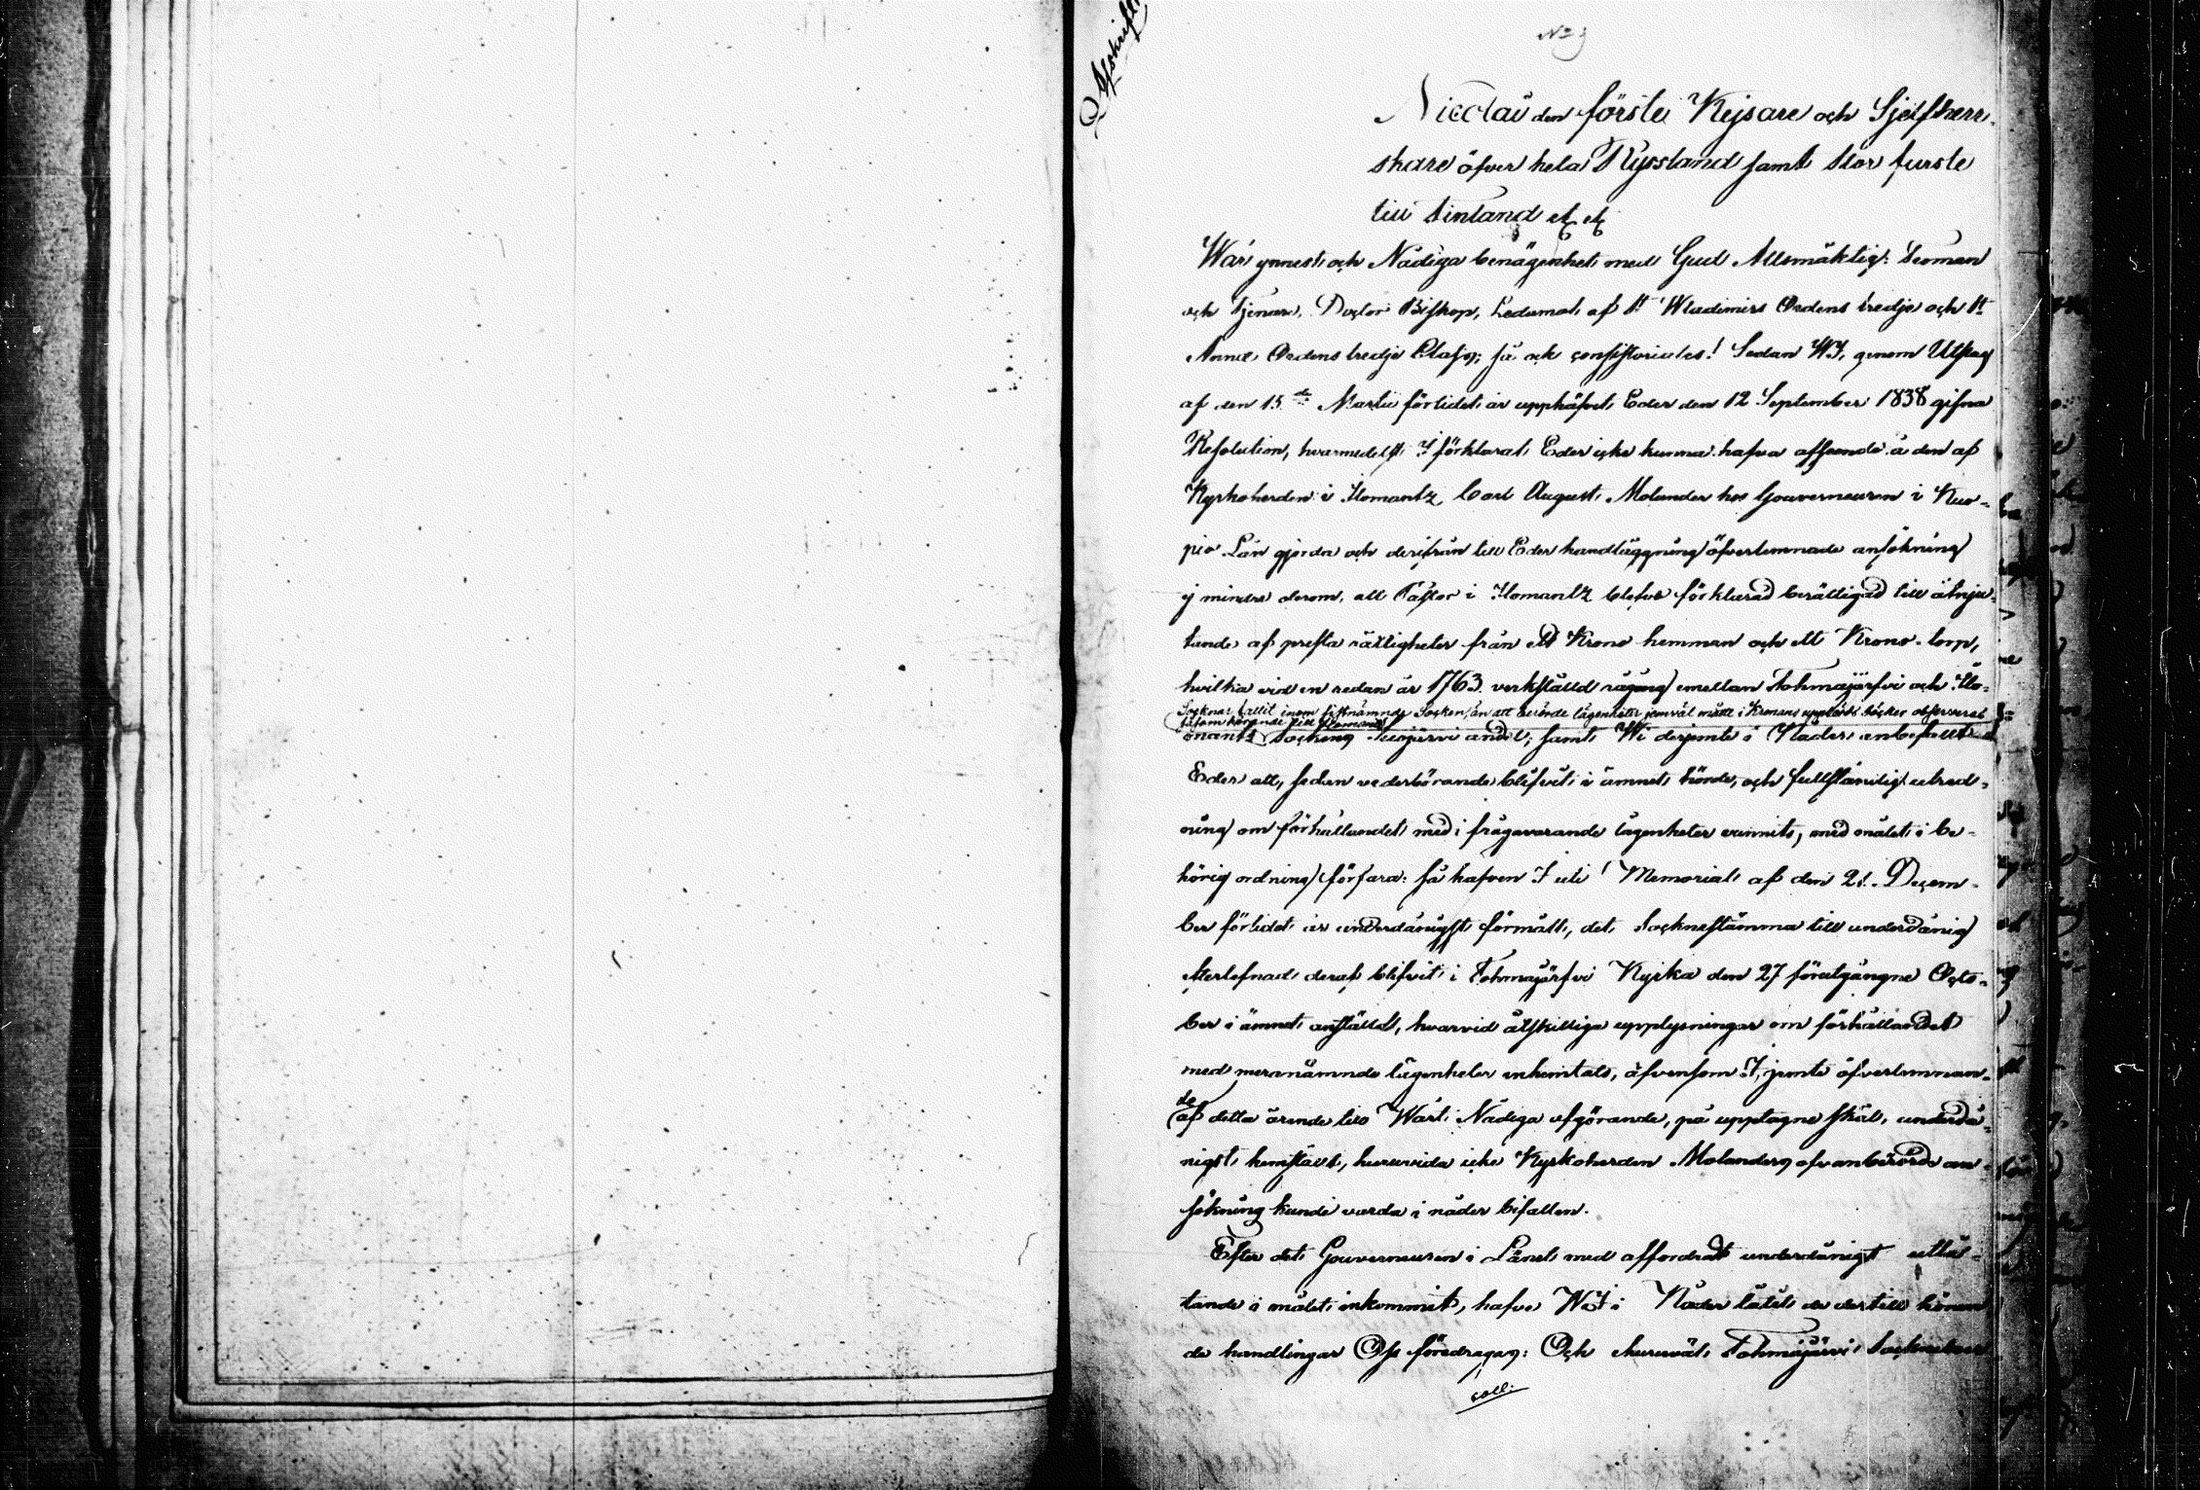 Afskrift
No 9
Nicolai den förste Kejsare och Sjelfherr-
skare öfver hela Ryssland samt Stor furste
till Finland etc etc
Wår ynnest och Nådiga benägenhet med Gud Allsmäktig: Troman
och Tjenare, Doctor Biskop, Ledamot af St Wladimirs Ordens tredje och St
Annæ Ordens tredje Class; så ock consistoriales! Sedan WJ, genom Utslag
af den 15de Martii förlidet år upphäfvit Eder den 12 September 1838 gifna
Resolution, hvarmedelst I förklarat Eder icke kunna hafva afseende å den af
Kyrkoherden i Ilomantz Carl August Molander hos Gouverneuren i Kuo-
pio Län gjorda och derifrån till Eder handläggning öfverlemnade ansökning
ej mindre derom, att Pastor i Ilomantz blefve förklarad berättigad till åtnju-
tande af presta rättigheter från ett Krono hemman och ett Krono-torp,
hvilka vid en redan år 1763 verkställd rågång emellan Tohmajärfvi och Ilo-
Socknar fallit inom sistnämnde Socken, än att berörde lägenheter jemväl måtte i Kronans uppbörds böcker observeras
såsom hörande till Ilomants
mants Sockens andel; samt Wi derjemte i Nåder anbefallt
Eder att, sedan vederbörande blifvit i ämnet hörde, och fullständig utred-
ning om förhållandet med i frågavarande lägenheter vunnits, med målet i be-
hörig ordning förfara: så hafven I uti Memorial af den 21 Decem-
ber förlidet år underdånigst förmält, det Socknestämma till underdånig
efterlefnad deraf blifvit i Tohmajärfvi Kyrka den 27 förutgångne Octo-
ber i ämnet anställd, hvarvid åtskilliga upplysningar om förhållandet
med meranämnde lägenheter inhemtats, äfvensom I, jemte öfverlemnan-
de
af detta ärende till Wårt Nådiga afgörande, på upptagne skäl, underdå-
nigst hemställt, huruvida icke Kyrkoherden Molanders ofvanberörde an-
sökning kunde varda i nåder bifallen.
Efter det Gouverneuren i Länet med affordradt underdånigst utlå-
tande i målet inkommit, hafve Wi i Nåder låtit de dertill höran
de handlingar Oss föredragas: Och ehuruväl Tohmajärvi
coll.